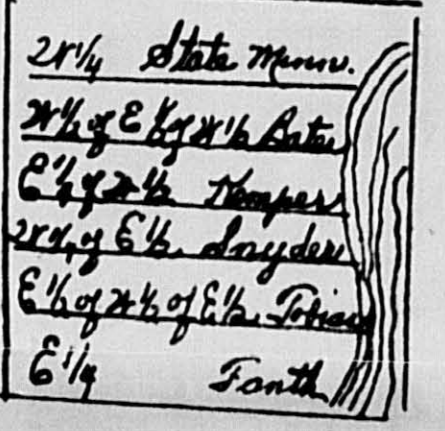 W 1/4 State Minn.
W 1/2 of E 1/2 of W 1/2 Bates
E 1/2 of W 1/2 Kemper
W 1/4 of E 1/2 Snyder
E 1/2 of W 1/2 of E 1/2 Tobias
E 1/4 Fanth